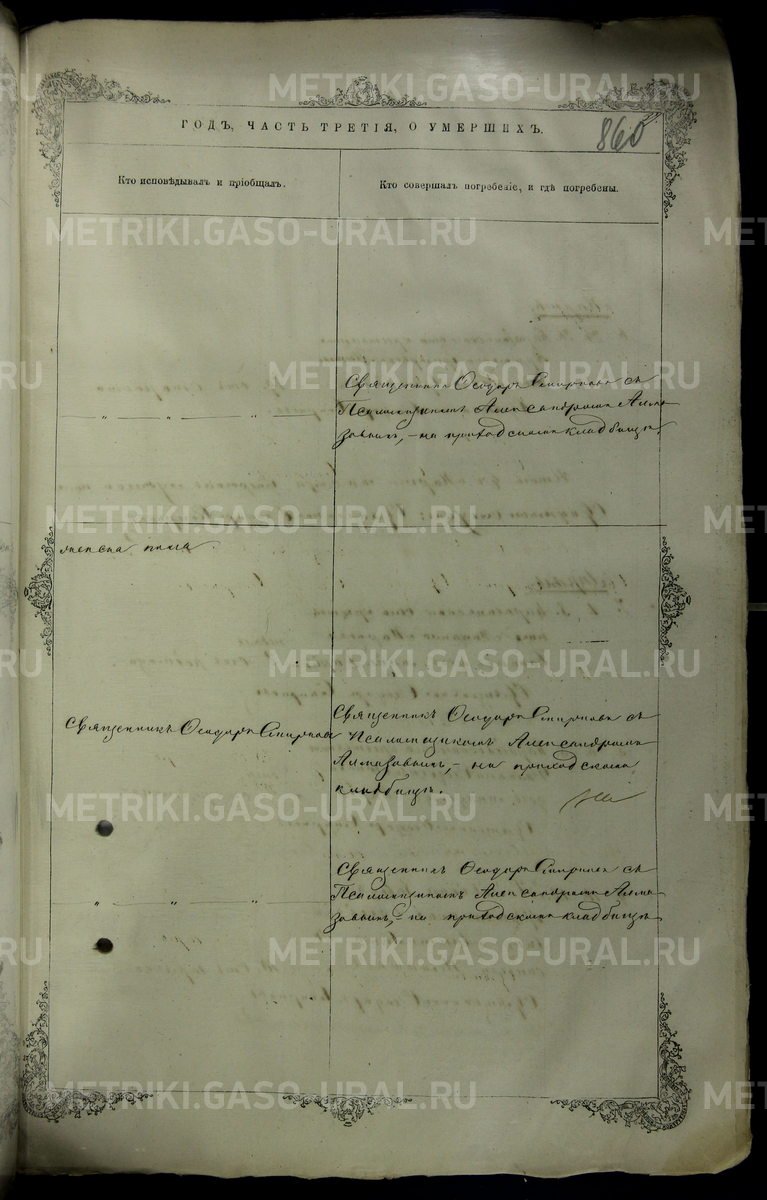 METRIKI.GASO-URAL.RU
ГОДЪ, ЧАСТЬ ТРЕТІЯ, О УМЕРШИХЪ.
860
Кто исповѣдывалъ и пріобщалъ.
Кто совершалъ погребеніе, и гдѣ погребены.
Священникъ Ѳеодоръ Смирновъ съ
Псаломщикомъ Александромъ Алма-
зовымъ, - на приходскомъ кладбищѣ.
" — " — " — " —
Священникъ Ѳеодоръ Смирновъ
Священникъ Ѳеодоръ Смирновъ съ
Псаломщикомъ Александромъ
Алмазовымъ, - на приходскомъ
кладбищѣ.
" — " — "
Священникъ Ѳеодоръ Смирновъ съ
Псаломщикомъ Александромъ Алма-
зовымъ, - на приходскомъ кладбищѣ